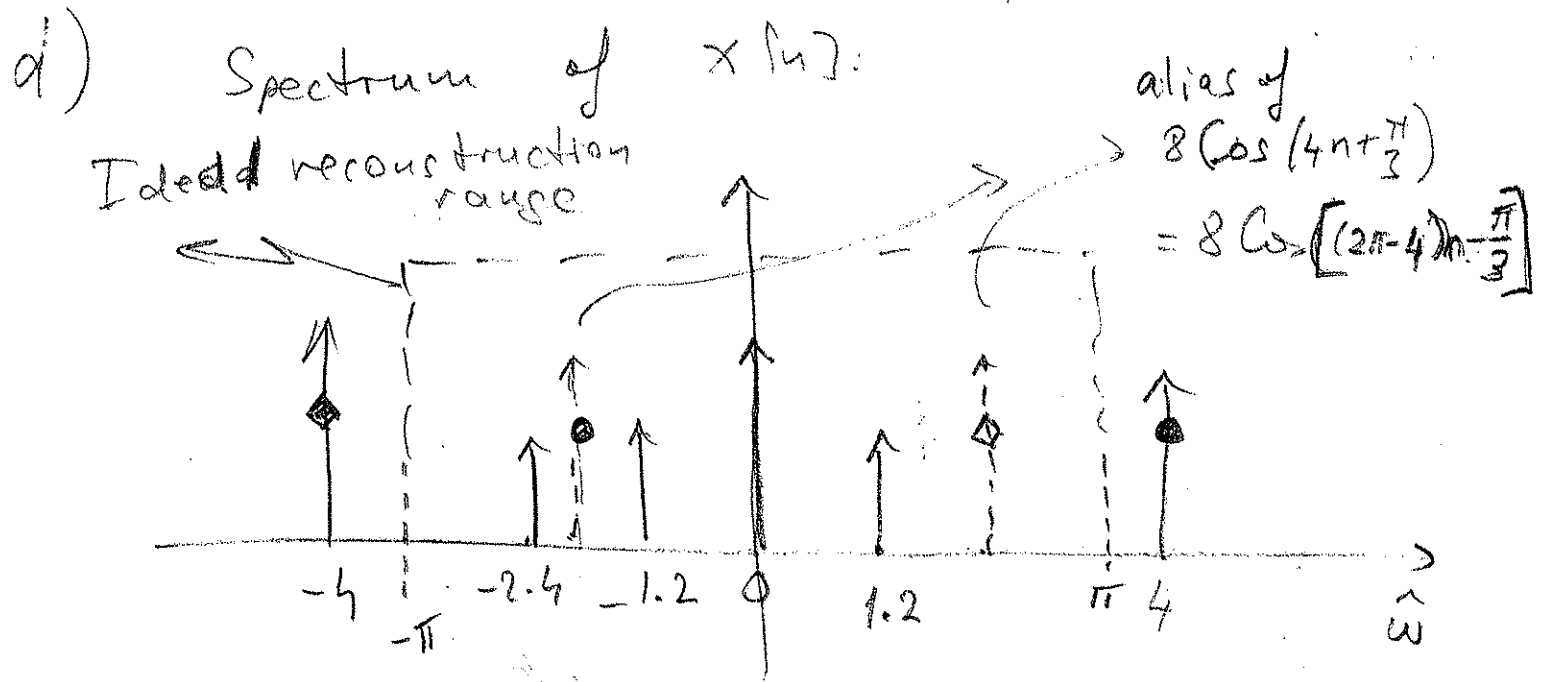 d) Spectrum of x[n]:
Ideal reconstruction
range
alias of
8 Cos (4n+π/3)
= 8 Cos[(2π-4)n-π/3]
-4 -π -2.4 -1.2 0 1.2 π 4
ω̂